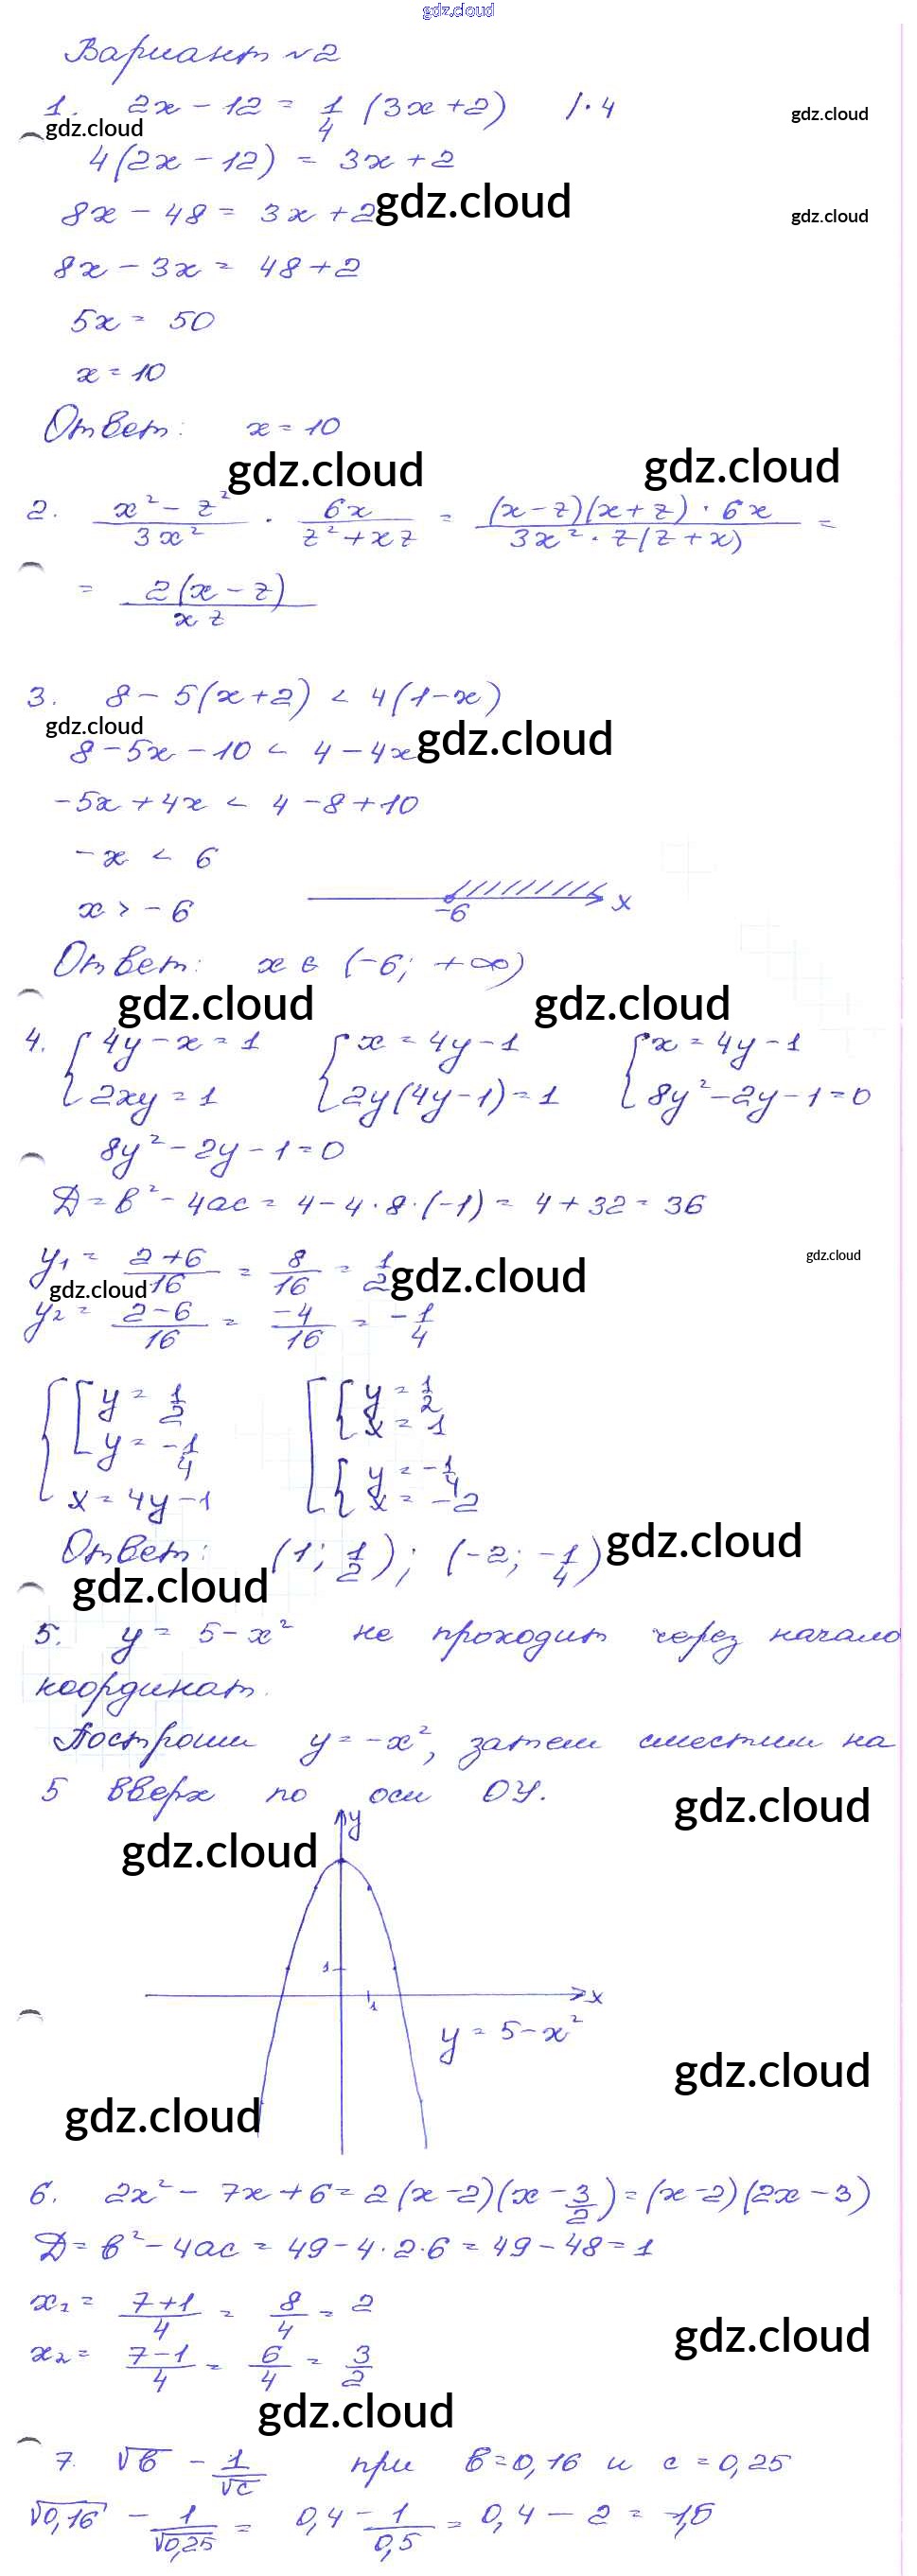 gdz.cloud
Вариант №2
1. 2x - 12 = 1/4 (3x+2) /· 4
gdz.cloud
gdz.cloud
4(2x - 12) = 3x + 2
8x - 48 = 3x + 2
gdz.cloud
gdz.cloud
8x - 3x = 48 + 2
5x = 50
x = 10
Ответ: x = 10
gdz.cloud
gdz.cloud
2. (x² - z²)/(3x²) · 6x/(z² + xz) = ((x-z)(x+z) · 6x)/(3x² · z(z+x)) =
= 2(x-z)/(xz)
3. 8 - 5(x+2) < 4(1-x)
gdz.cloud
8 - 5x - 10 < 4 - 4x
gdz.cloud
-5x + 4x < 4 - 8 + 10
-x < 6
x > -6
-6 x
Ответ: x ∈ (-6; +∞)
gdz.cloud
gdz.cloud
4. { 4y - x = 1 { x = 4y - 1 { x = 4y - 1
{ 2xy = 1 { 2y(4y-1) = 1 { 8y² - 2y - 1 = 0
8y² - 2y - 1 = 0
Д = b² - 4ac = 4 - 4·8·(-1) = 4 + 32 = 36
y₁ = (2+6)/16 = 8/16 = 1/2
gdz.cloud
gdz.cloud
gdz.cloud
y₂ = (2-6)/16 = -4/16 = -1/4
{ [ y = 1/2 [ { y = 1/2
x = 1
y = -1/4
{ y = -1/4
x = 4y - 1 x = -2
Ответ: (1; 1/2); (-2; -1/4)
gdz.cloud
gdz.cloud
5. y = 5 - x² не проходит через начало
координат.
Построим y = -x², затем сместим на
5 вверх по оси ОУ.
gdz.cloud
y
gdz.cloud
1
x
1
y = 5 - x²
gdz.cloud
gdz.cloud
6. 2x² - 7x + 6 = 2(x-2)(x - 3/2) = (x-2)(2x-3)
Д = b² - 4ac = 49 - 4·2·6 = 49 - 48 = 1
x₁ = (7+1)/4 = 8/4 = 2
gdz.cloud
x₂ = (7-1)/4 = 6/4 = 3/2
gdz.cloud
7. √b - 1/√c при b = 0,16 и c = 0,25
√0,16 - 1/√0,25 = 0,4 - 1/0,5 = 0,4 - 2 = -1,6